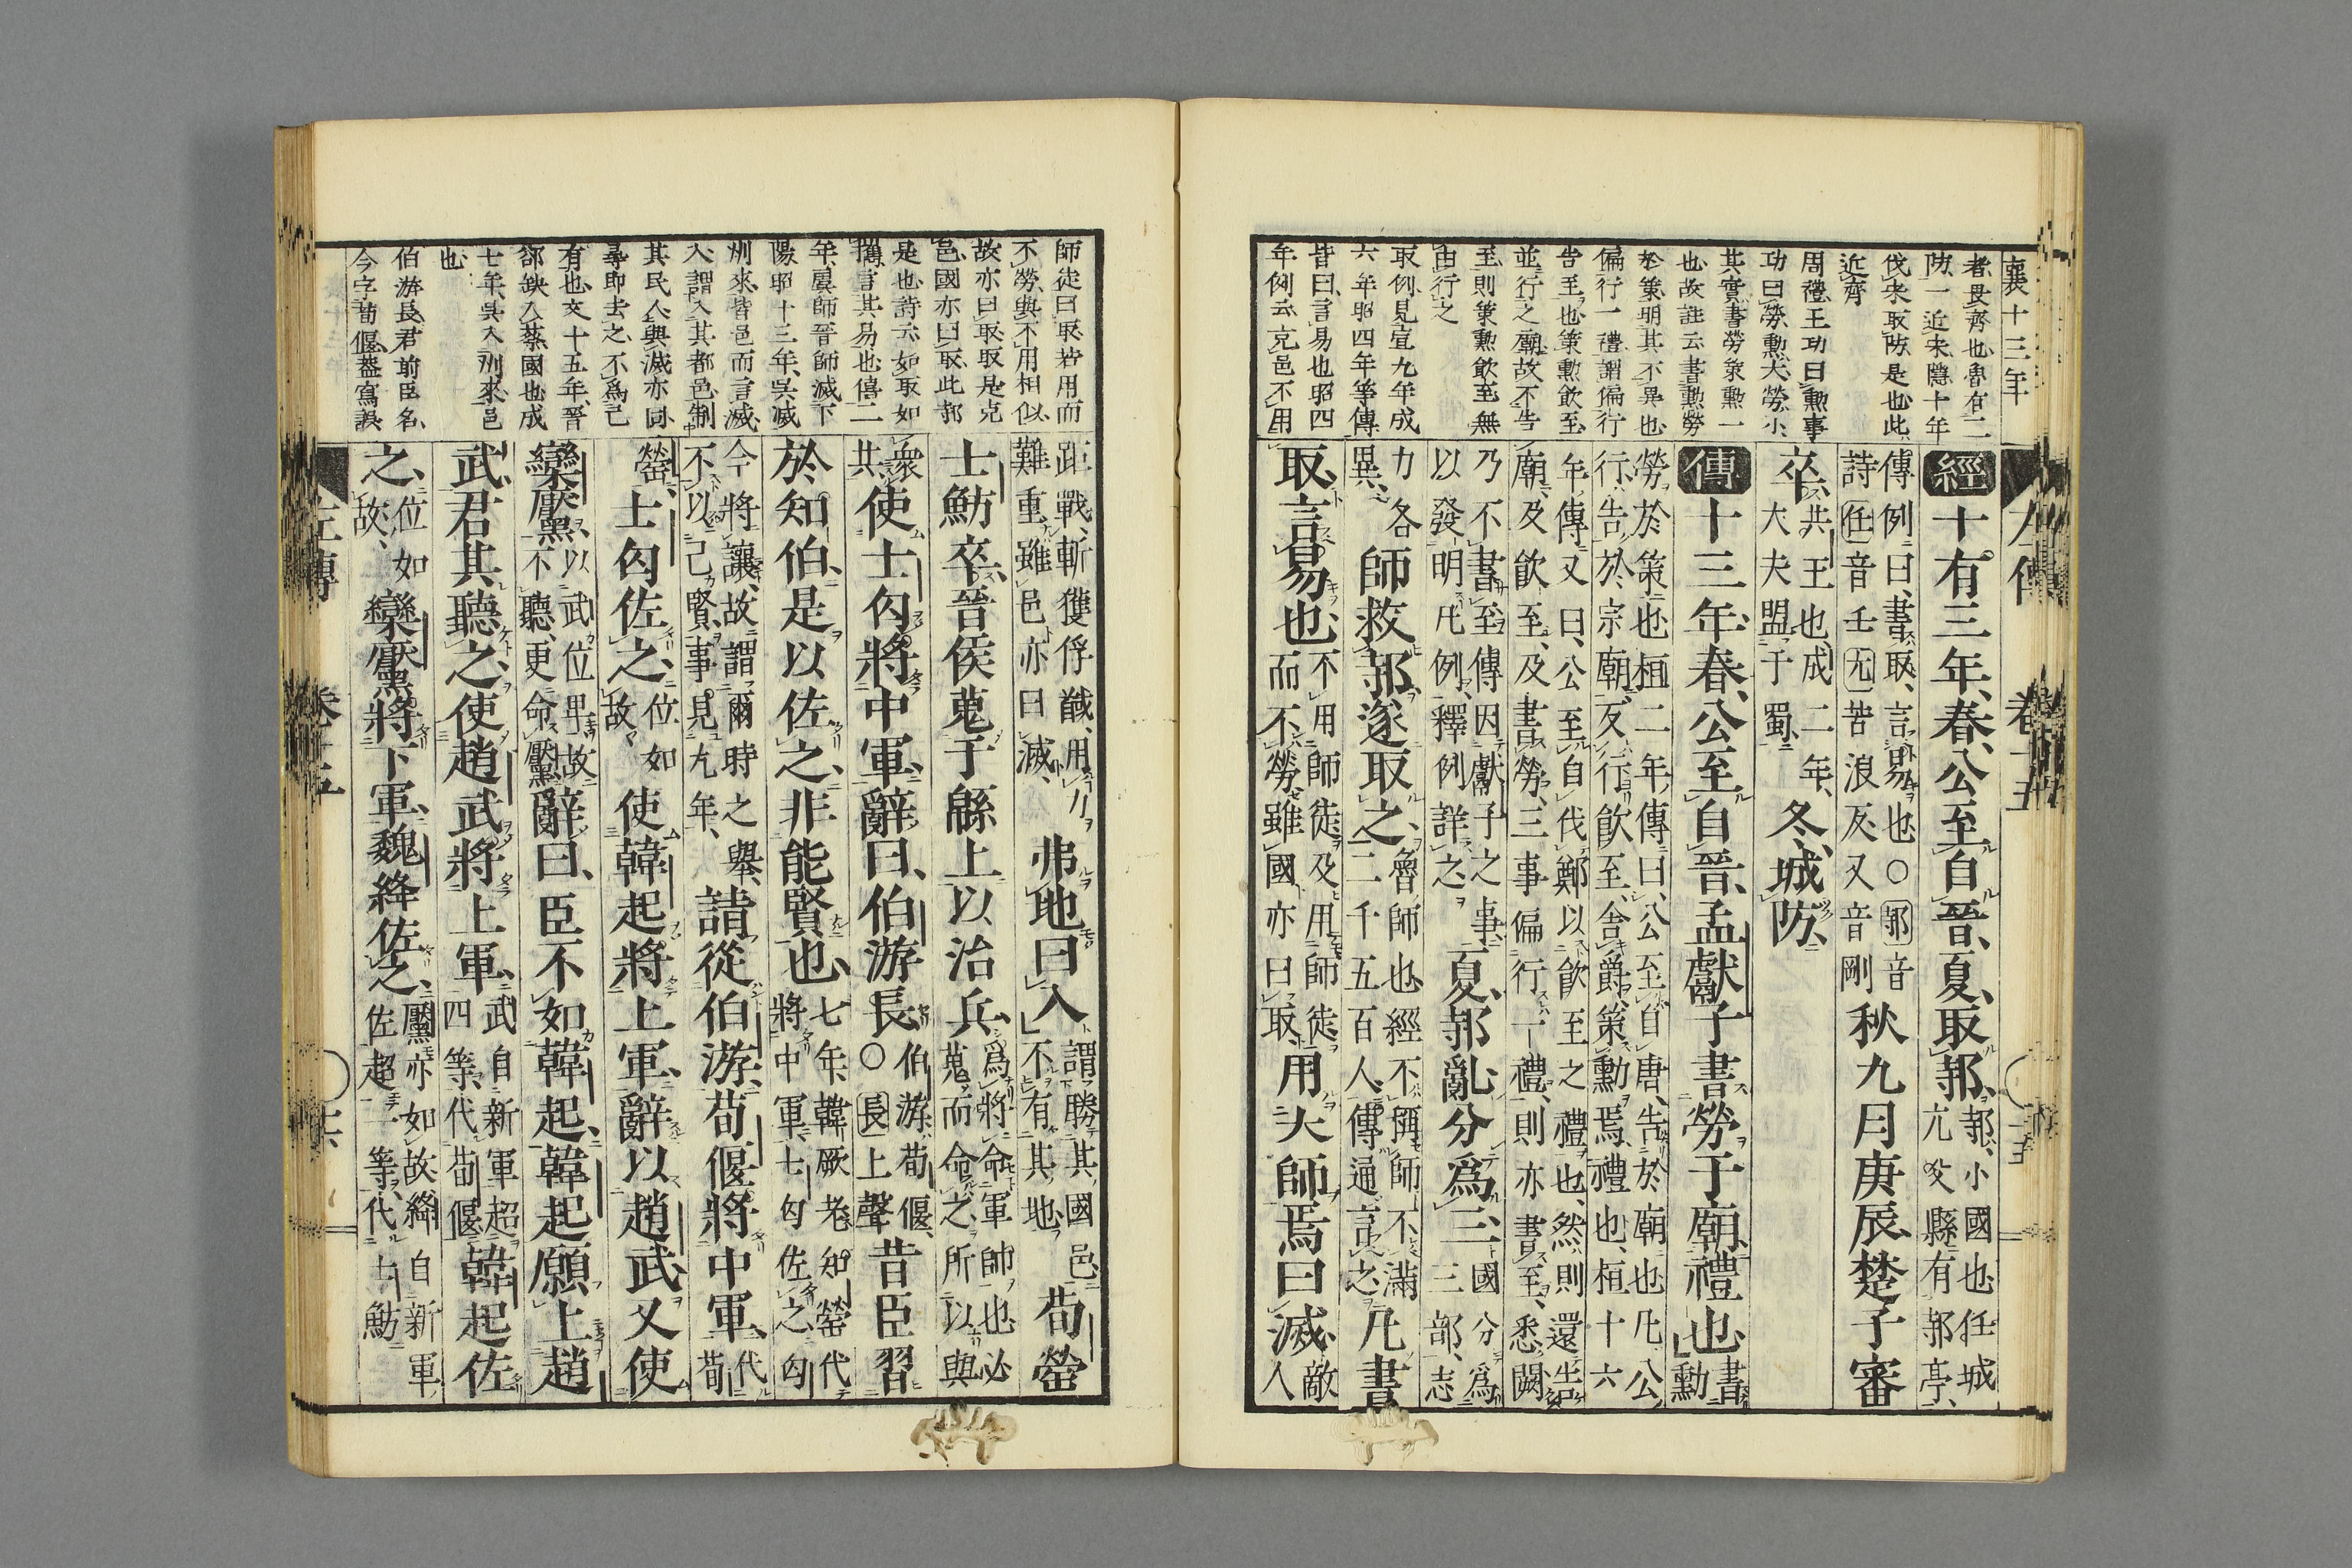 左傳 卷十五
襄十三年
者畏齊也魯有二
防一近宋隱十年
伐宋取防是也此
近齊
周禮王功曰勲事
功曰勞勲大勞小
其實書勞策勲一
也故註云書勲勞
於策明其不異也
偏行一禮謂偏行
告至也策勲飲至
並行之廟故不告
至則策勲飲至無
由行之
取例見宣九年成
六年昭四年等傳
皆曰言易也昭四
年例云克邑不用
經十有三年、春、公至自晉、夏、取邿、邿、小國也任城亢父縣有邿亭、
傳例曰、書取、言易也○邿音詩任音壬亢苦浪反又音剛秋九月庚辰、楚子審
卒、共王也、成二年、大夫盟于蜀、冬、城防、
傳十三年、春、公至自晉、孟獻子書勞于廟、禮也、書勲
勞於策也桓二年、傳曰、公至自唐、告於廟也凡公行、告於宗廟、反行、飲至、舎爵策勲焉、禮也、桓十六
年傳又曰、公至自伐鄭以飲至之禮也、然則還告廟、及飲至、及書勞、三事偏行一禮、則亦書至、悉闕
乃不書至傳因獻子之事、以發明凡例、釋例詳之、夏、邿亂、分爲三、國分爲三部、志
力各異、師救邿、遂取之、魯師也經不稱師、不滿二千五百人、傳通言之、凡書
取、言易也、不用師徒、及用師徒、而不勞、雖國亦曰取、用大師焉曰滅、敵人
師徒曰取若用而
不勞與不用相似
故亦曰取取是克
邑國亦曰取此邿
是也詩云如取如
攜言其易也僖二
年虞師晉師滅下
陽昭十三年吳滅
州來皆邑而言滅
入謂入其都邑制
其民人與滅亦同
尋即去之不爲己
有也文十五年晉
郤缺入蔡國也成
七年吳入州來邑
也
伯游長君前臣名
今字荀偃蓋寫誤
距戰、斬獲俘馘、用力難重、雖邑亦曰滅、弗地曰入、謂勝其國邑、不有其地、荀罃
士魴卒、晉侯蒐于緜上以治兵、爲將命軍帥也、必蒐、而命之、所以與
衆共、使士匄將中軍、辭曰、伯游長、伯游、荀偃、○長上聲昔臣習
於知伯、是以佐之、非能賢也、七年、韓厥老、知罃代將中軍、士匄佐之、匄
今將讓、故謂爾時之舉、不以己賢、事見九年、請從伯游、荀偃將中軍、代荀
罃、士匄佐之、位如故、使韓起將上軍、辭以趙武、又使
欒黶、以武位卑故不聽、更命黶、辭曰、臣不如韓起、韓起願上趙
武、君其聽之、使趙武將上軍、武自新軍超四等、代荀偃、韓起佐
之、位如故、欒黶將下軍、魏絳佐之、黶亦如故絳自新軍佐超一等、代士魴、
左傳 卷十五